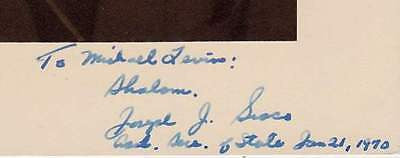 To Michael Levin:
Shalom.
Joseph J. Sisco
Asst. Sec. of State Jan 21, 1970